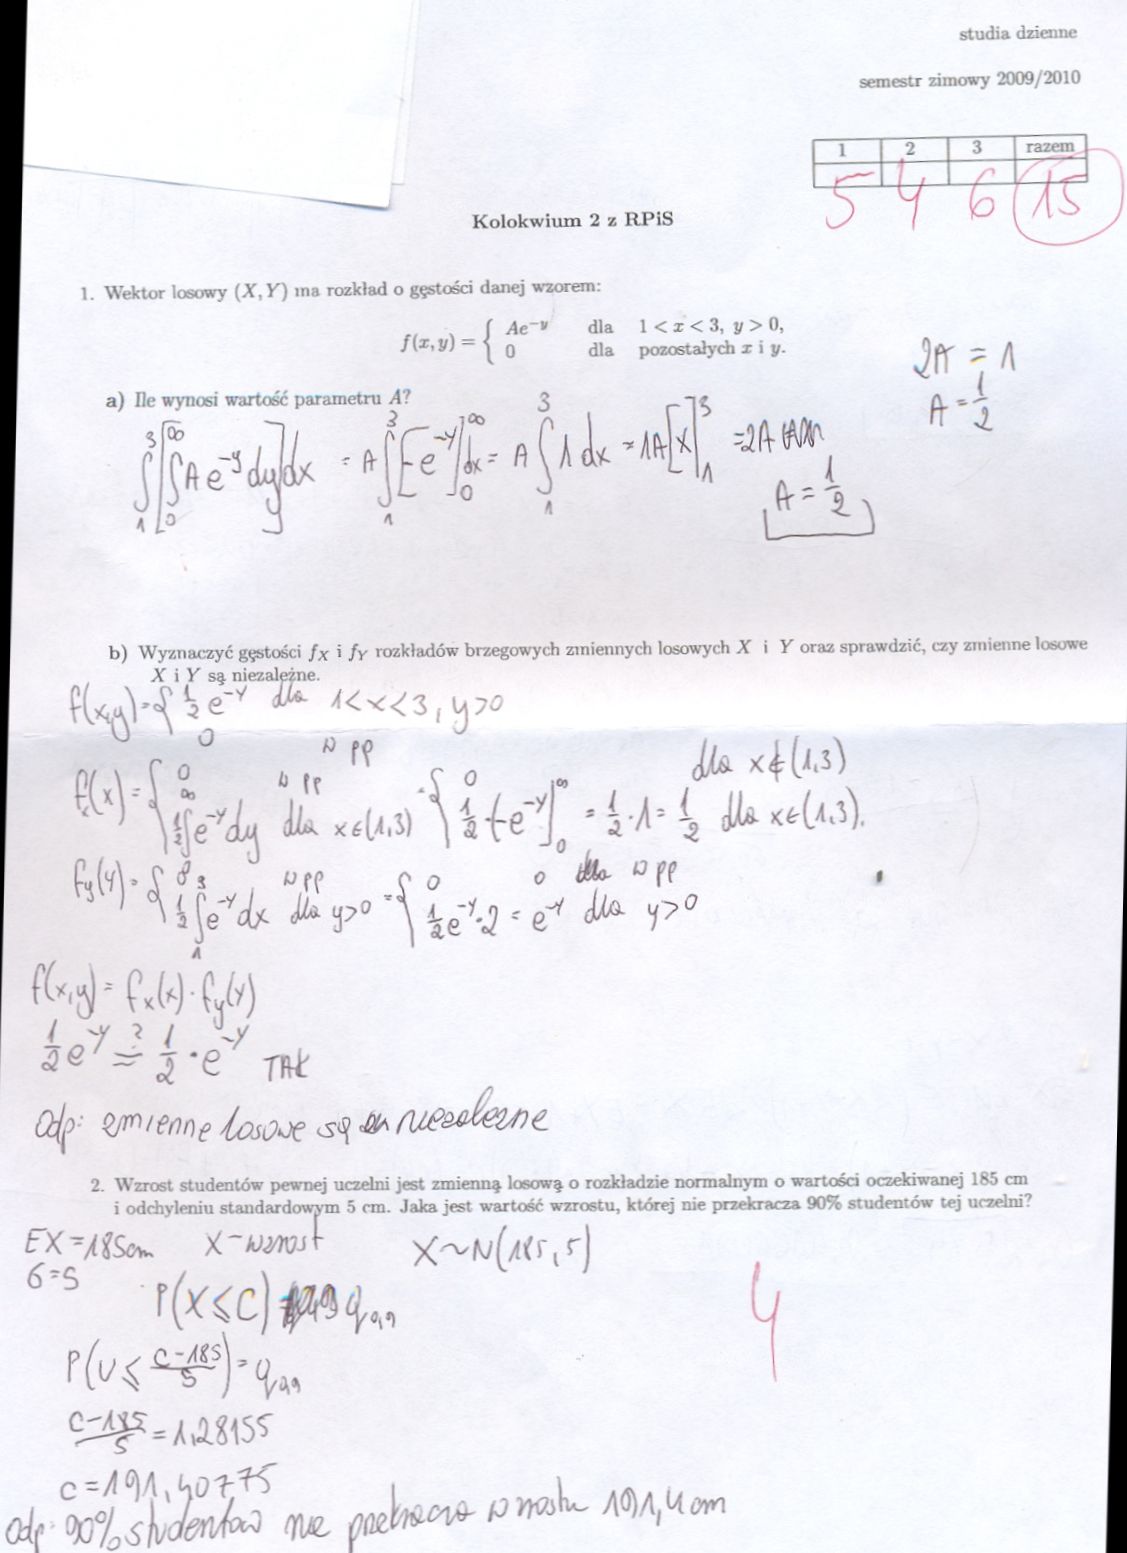 studia dzienne
semestr zimowy 2009/2010
1 2 3 razem
5 4 6 15
Kolokwium 2 z RPiS
1. Wektor losowy (X, Y) ma rozkład o gęstości danej wzorem:
f(x, y) = { Ae^{-y} dla 1 < x < 3, y > 0,
0 dla pozostałych x i y.
2A = 1
A = 1/2
a) Ile wynosi wartość parametru A?
∫_1^3 [∫_0^∞ A e^{-y} dy] dx = A ∫_1^3 [-e^{-y}]_0^∞ dx = A ∫_1^3 1 dx = 1A [x]_1^3 = 2A
A = 1/2
b) Wyznaczyć gęstości f_X i f_Y rozkładów brzegowych zmiennych losowych X i Y oraz sprawdzić, czy zmienne losowe
X i Y są niezależne.
f(x,y) = { 1/2 e^{-y} dla 1<x<3, y>0
0 w pp
f_x(x) = { 0 w pp = { 0 dla x∉(1,3)
1/2 ∫_0^∞ e^{-y} dy dla x∈(1,3) 1/2 [-e^{-y}]_0^∞ = 1/2 · 1 = 1/2 dla x∈(1,3).
f_y(y) = { 0 w pp = { 0 0 w pp
1/2 ∫_1^3 e^{-y} dx dla y>0 1/2 e^{-y} · 2 = e^{-y} dla y>0
f(x,y) = f_x(x) · f_y(y)
1/2 e^{-y} ?= 1/2 · e^{-y} TAK
Odp: zmienne losowe są niezależne
2. Wzrost studentów pewnej uczelni jest zmienną losową o rozkładzie normalnym o wartości oczekiwanej 185 cm
i odchyleniu standardowym 5 cm. Jaka jest wartość wzrostu, której nie przekracza 90% studentów tej uczelni?
EX = 185cm X - wzrost X ~ N(185, 5)
σ = 5
4
P(X ≤ C) = q_{0,9}
P(U ≤ (c-185)/5) = q_{0,9}
(c-185)/5 = 1,28155
c = 191,40775
Odp: 90% studentów nie przekracza wzrostu 191,4 cm